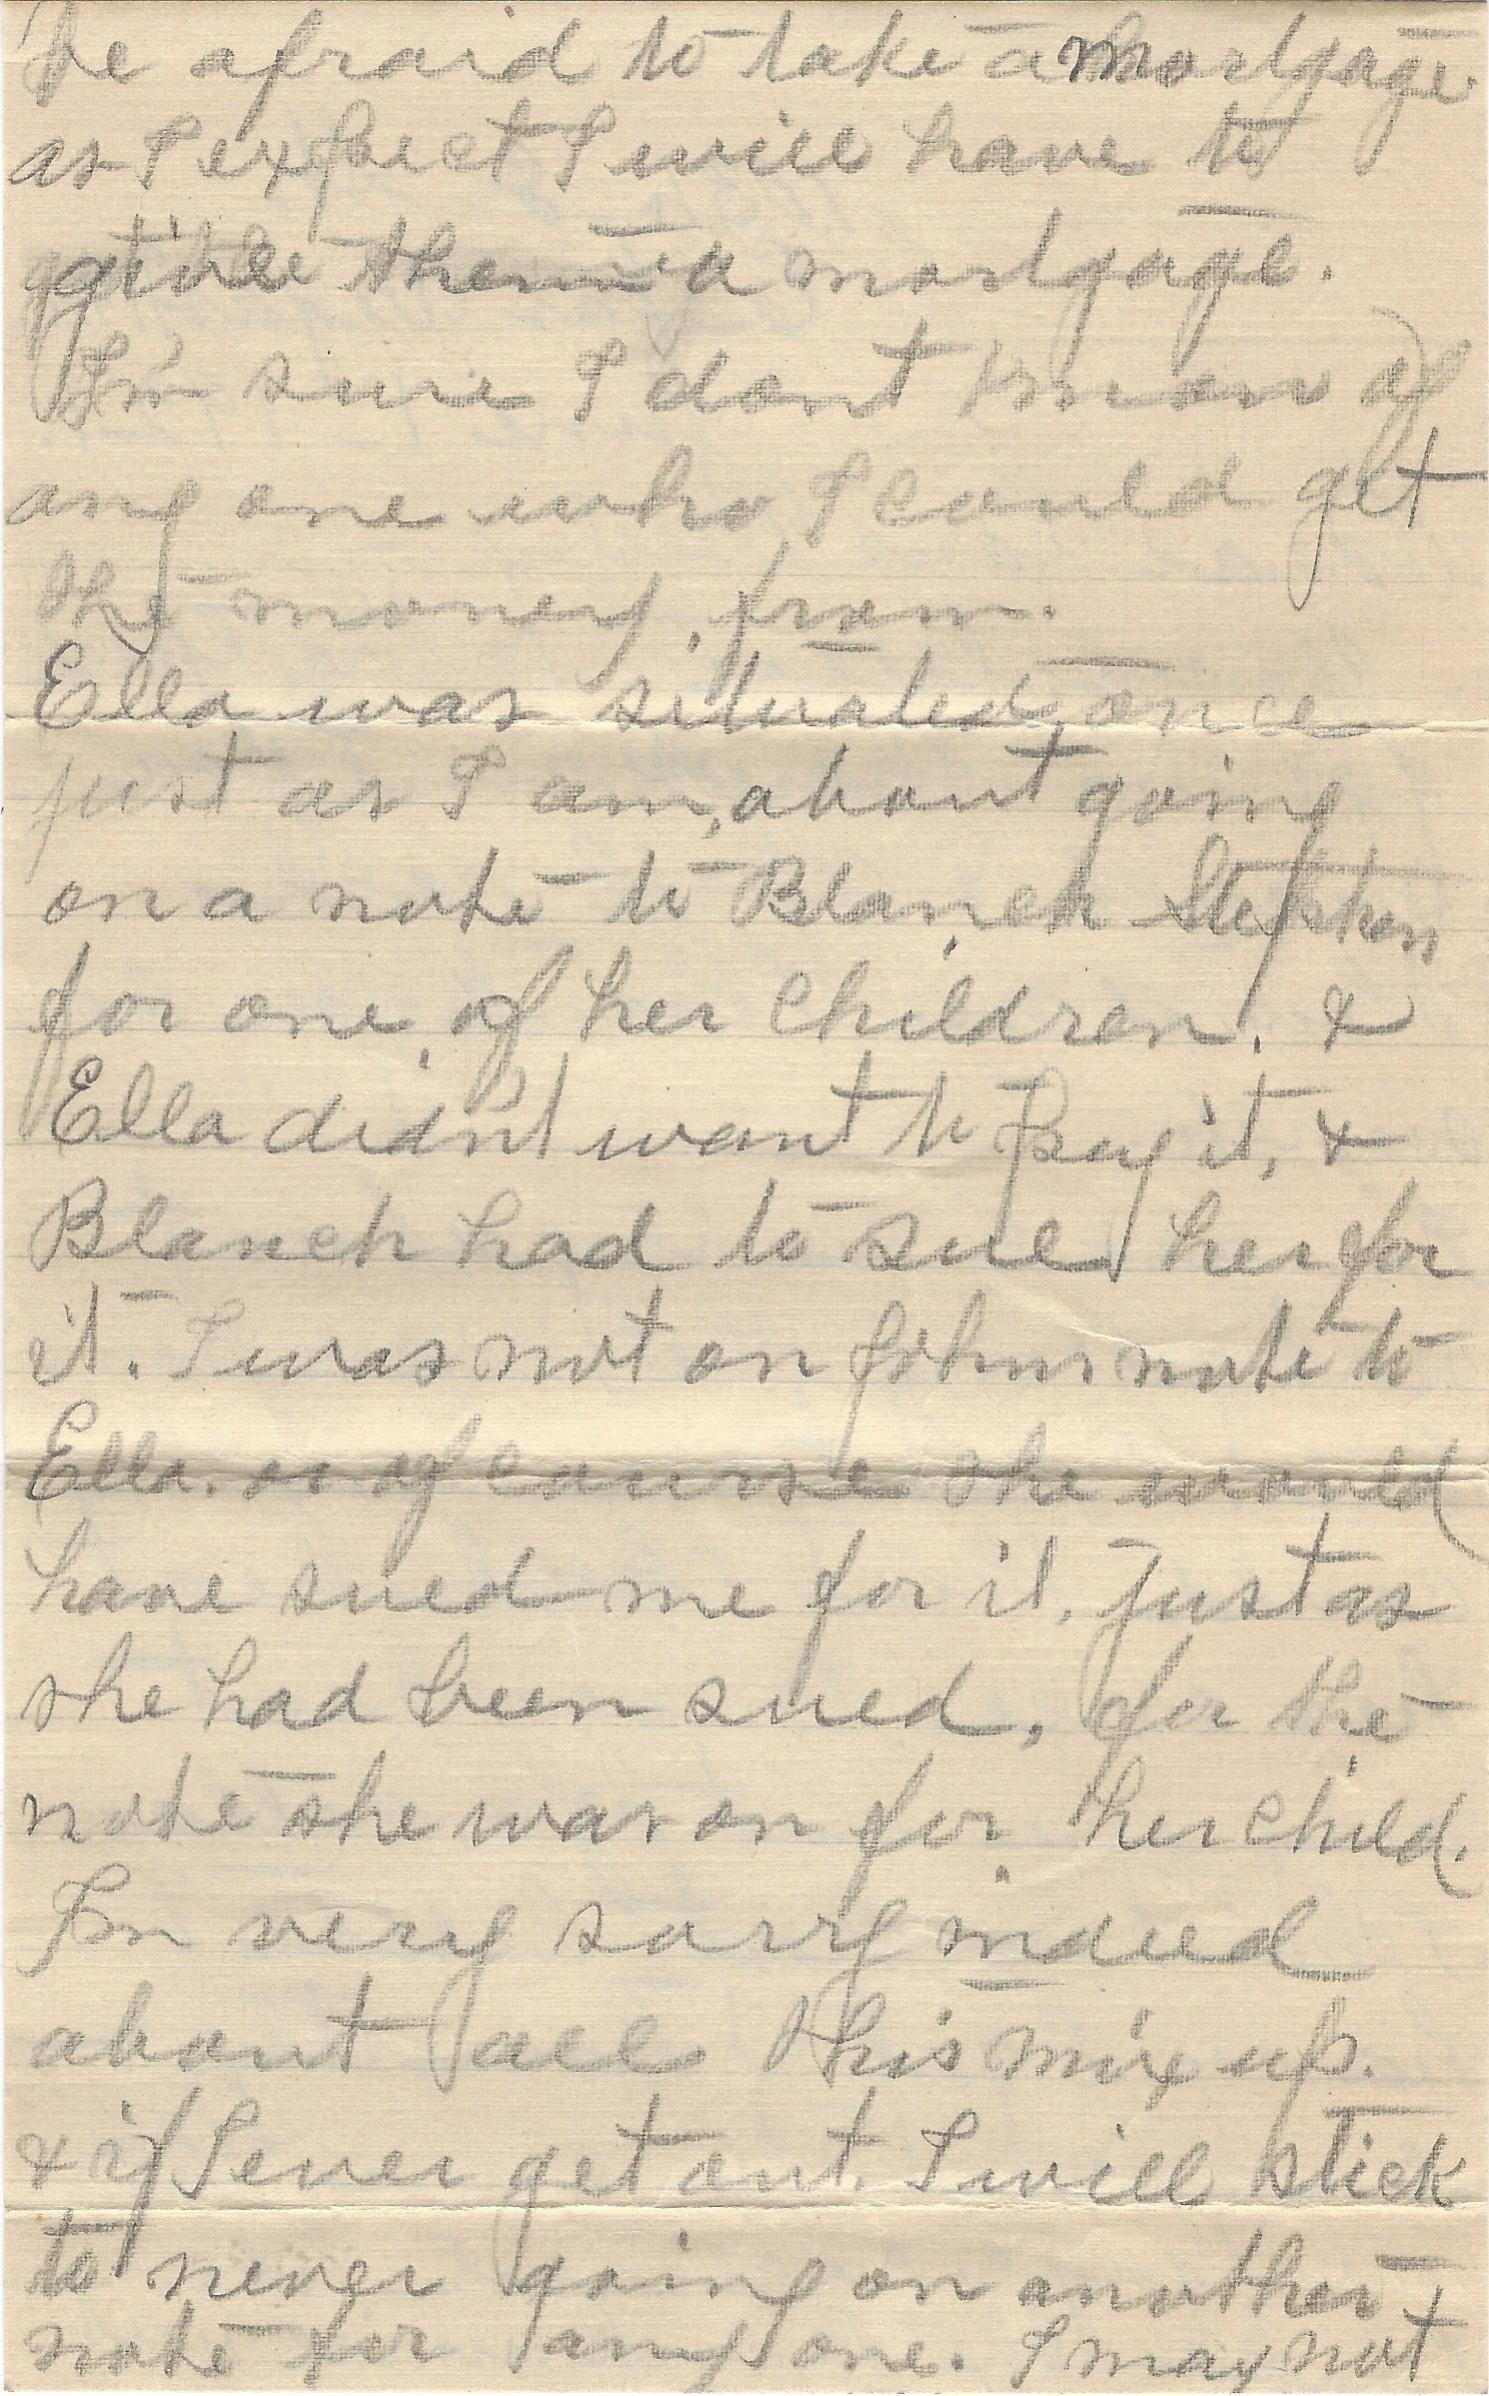 be afraid to take a Mortgage
as I expect I will have to
give them a mortgage.
I'm sure I dont know of
any one who I could get
the money from.
Ella was situated once
just as I am, about going
on a note to Blanch Stephen
for one of her Children. &
Ella didn't want to Pay it, &
Blanch had to sue her for
it. I was not on Johns note to
Ella. or of course she would
have sued me for it, just as
she had been sued, for the
note she was on for her Child.
I'm very sorry indeed
about all this mix up.
& if I ever get out. I will stick
to never going on another
note for any one. I may not